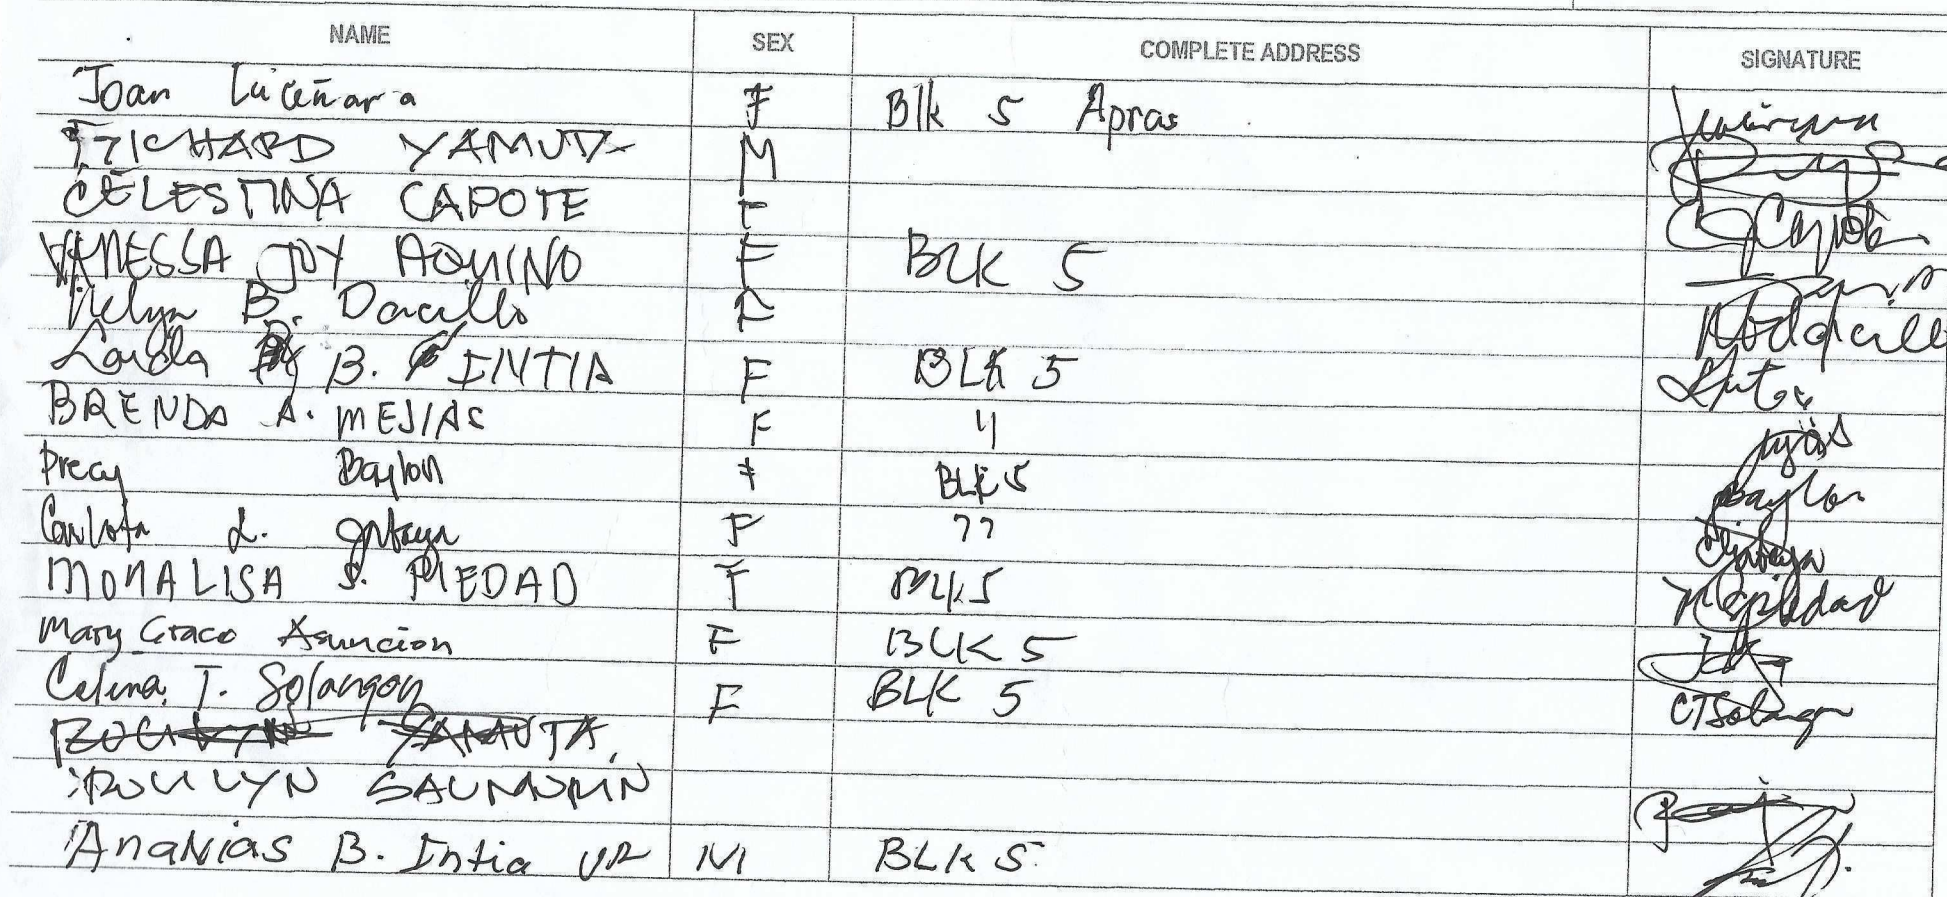 NAME SEX COMPLETE ADDRESS SIGNATURE
Joan Luceñara F Blk 5 Apras
RICHARD YAMUTA M
CELESTINA CAPOTE F
VANESSA JOY AQUINO F BLK 5
Nelyn B. Dacillo F
Loida B. INTIA F BLK 5
BRENDA A. MEJIAS F 11
Precy Baylon F BLK 5 Baylon
Carlota L. F 77
MONALISA S. PIEDAD F BLK 5 Mspiedad
Mary Grace Asuncion F BLK 5
Celina T. Solangon F BLK 5 CTSolangon
YAMUTA
Ananias B. Intia JR M BLK 5